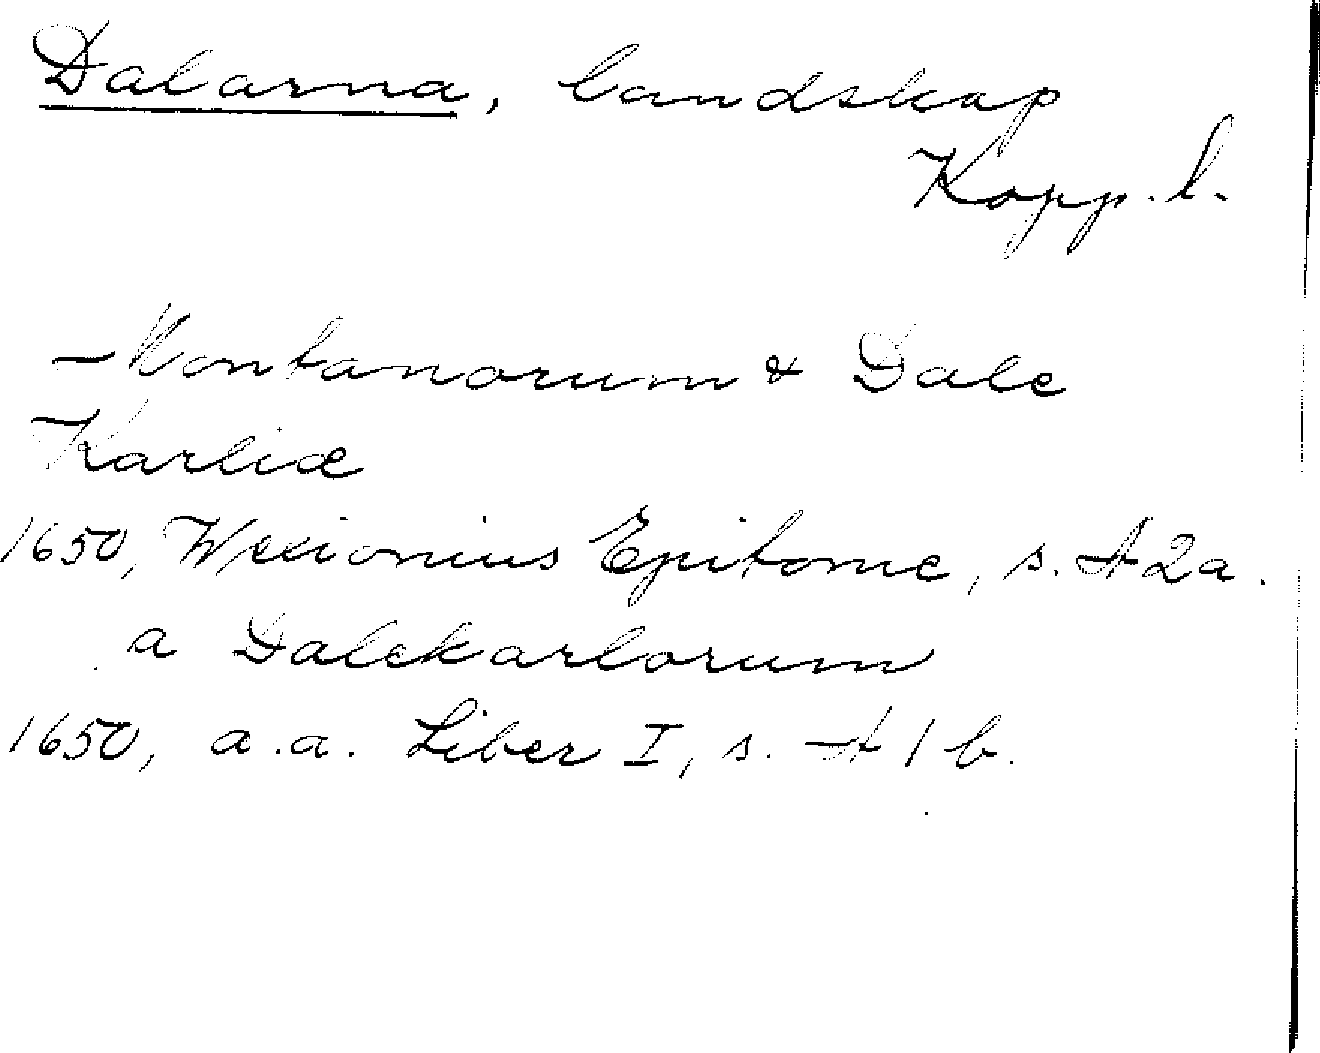 Dalarna, landskap
Kopp. l.
Montanorum & Dale
Karliæ
1650, Wexionius Epitome, s. A2a.
a Dalekarlorum
1650, a.a. Liber I, s. A1b.